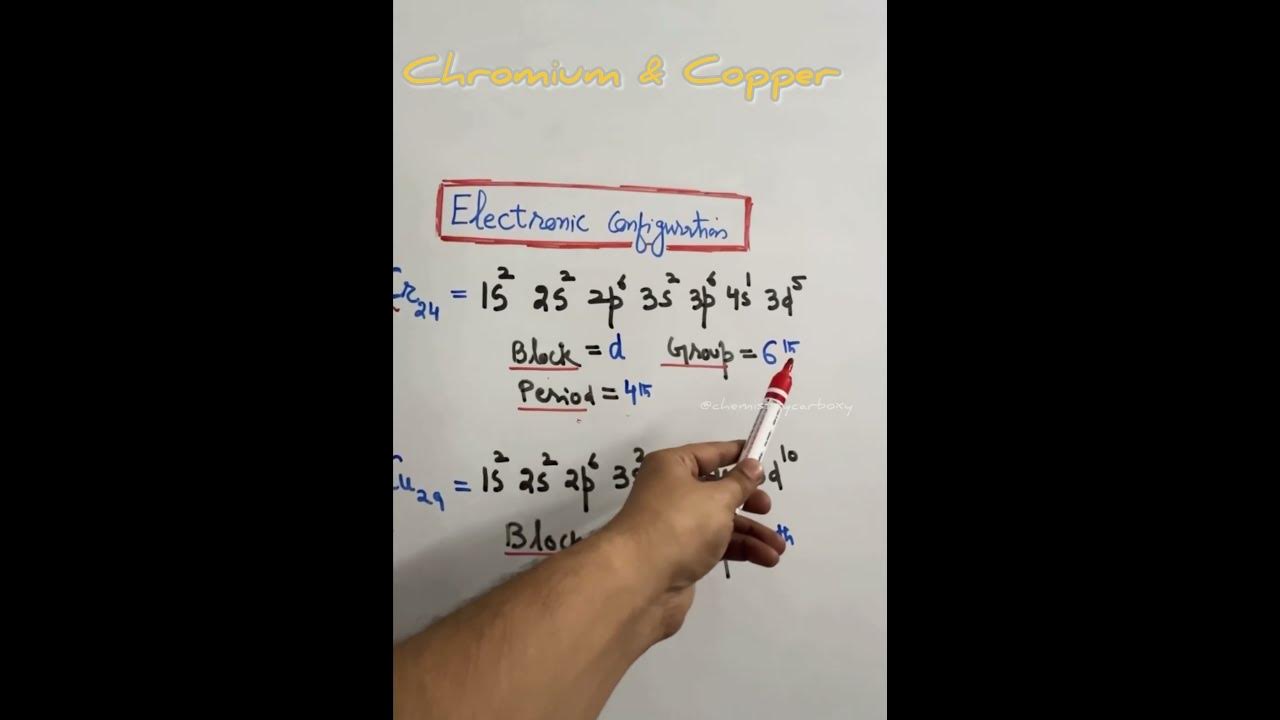 Chromium & Copper
Electronic Configuration
Cr24 = 1s² 2s² 2p⁶ 3s² 3p⁶ 4s¹ 3d⁵
Block = d Group = 6th
Period = 4th
@chemistrycarboxy
Cu29 = 1s² 2s² 2p⁶ 3s² d¹⁰
Block th